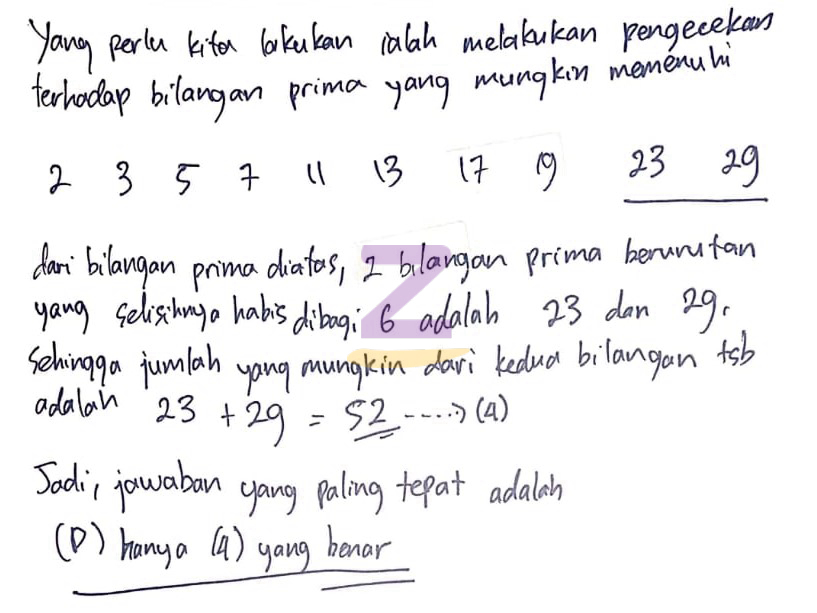 Yang perlu kita lakukan ialah melakukan pengecekan
terhadap bilangan prima yang mungkin memenuhi
2 3 5 7 11 13 17 19 23 29
dari bilangan prima diatas, 2 bilangan prima berurutan
yang selisihnya habis dibagi 6 adalah 23 dan 29.
Sehingga jumlah yang mungkin dari kedua bilangan tsb
adalah 23 + 29 = 52 ----> (4)
Jadi, jawaban yang paling tepat adalah
(D) hanya (4) yang benar